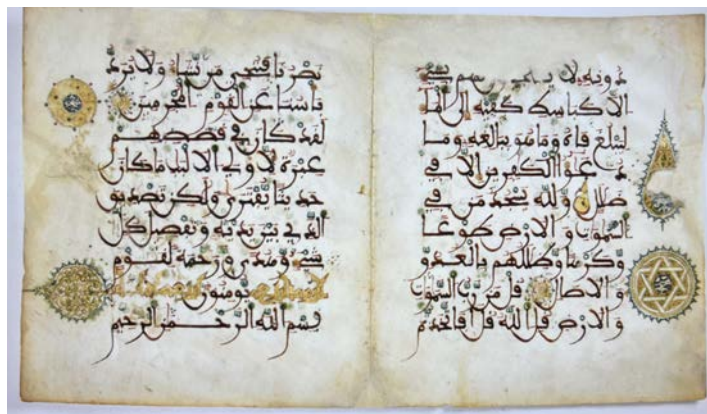 دونه لا يستجيبون لهم بشىء
الا كبسط كفيه الى الما
ليبلغ فاه وما هو ببلغه وما
دعؤا الكفرين الا في
ضلل ولله يسجد من في
السموت والارض طوعا
وكرها وظللهم بالغدو
والاصال قل من رب السموت
والارض قل الله قل افاتخذتم
نصرنا فننجي من نشاء ولا يرد
باسنا عن القوم المجرمين
لقد كان في قصصهم
عبرة لاولي الالبب ما كان
حديثا يفترى ولكن تصديق
الذي بين يديه وتفصيل كل
شيء وهدى ورحمة لقوم
يومنون
بسم الله الرحمن الرحيم